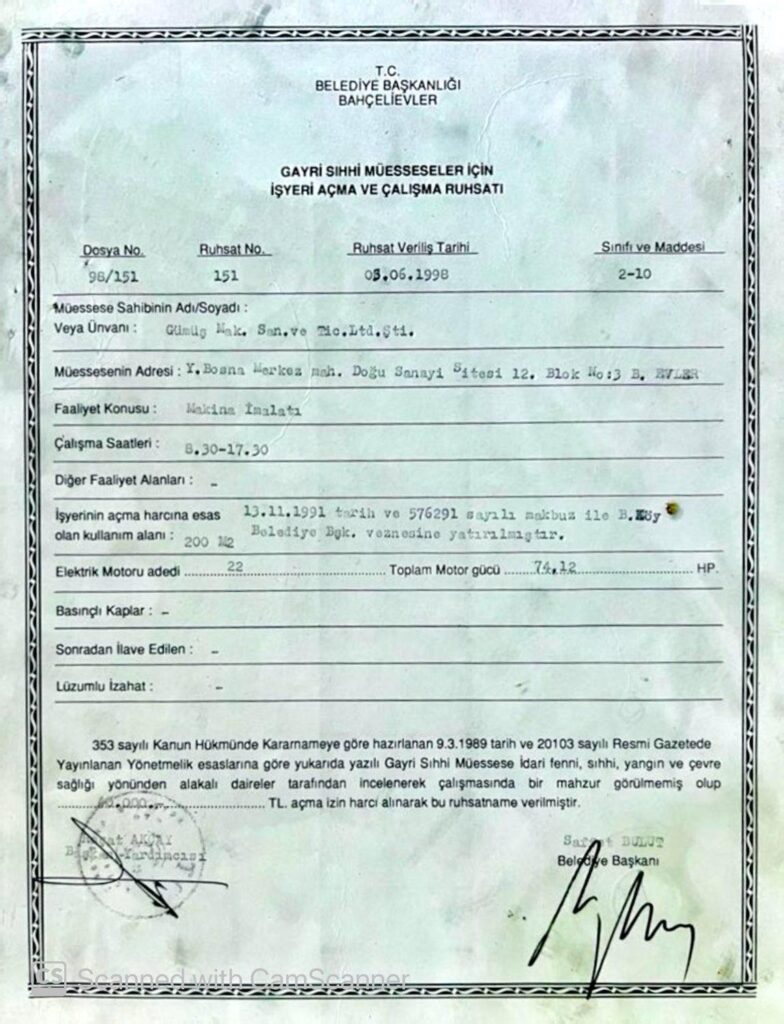 T.C.
BELEDİYE BAŞKANLIĞI
BAHÇELİEVLER
GAYRİ SIHHİ MÜESSESELER İÇİN
İŞYERİ AÇMA VE ÇALIŞMA RUHSATI
Dosya No. Ruhsat No. Ruhsat Veriliş Tarihi Sınıfı ve Maddesi
98/151 151 03.06.1998 2-10
Müessese Sahibinin Adı/Soyadı :
Veya Ünvanı : Gümüş Mak. San.ve Tic.Ltd.Şti.
Müessesenin Adresi : Y.Bosna Merkez mah. Doğu Sanayi Sitesi 12. Blok No:3 B. EVLER
Faaliyet Konusu : Makina İmalatı
Çalışma Saatleri : 8.30-17.30
Diğer Faaliyet Alanları : -
İşyerinin açma harcına esas 13.11.1991 tarih ve 576291 sayılı makbuz ile B.Köy
olan kullanım alanı : 200 M2 Belediye Bşk. veznesine yatırılmıştır.
Elektrik Motoru adedi ....... 22 ....... Toplam Motor gücü ....... 74,12 ....... HP.
Basınçlı Kaplar : -
Sonradan İlave Edilen : -
Lüzumlu İzahat : -
353 sayılı Kanun Hükmünde Kararnameye göre hazırlanan 9.3.1989 tarih ve 20103 sayılı Resmi Gazetede
Yayınlanan Yönetmelik esaslarına göre yukarıda yazılı Gayri Sıhhi Müessese İdari fenni, sıhhi, yangın ve çevre
sağlığı yönünden alakalı daireler tarafından incelenerek çalışmasında bir mahzur görülmemiş olup
TL. açma izin harcı alınarak bu ruhsatname verilmiştir.
AKÇAY
Başkan Yardımcısı
Saffet BULUT
Belediye Başkanı
CS Scanned with CamScanner